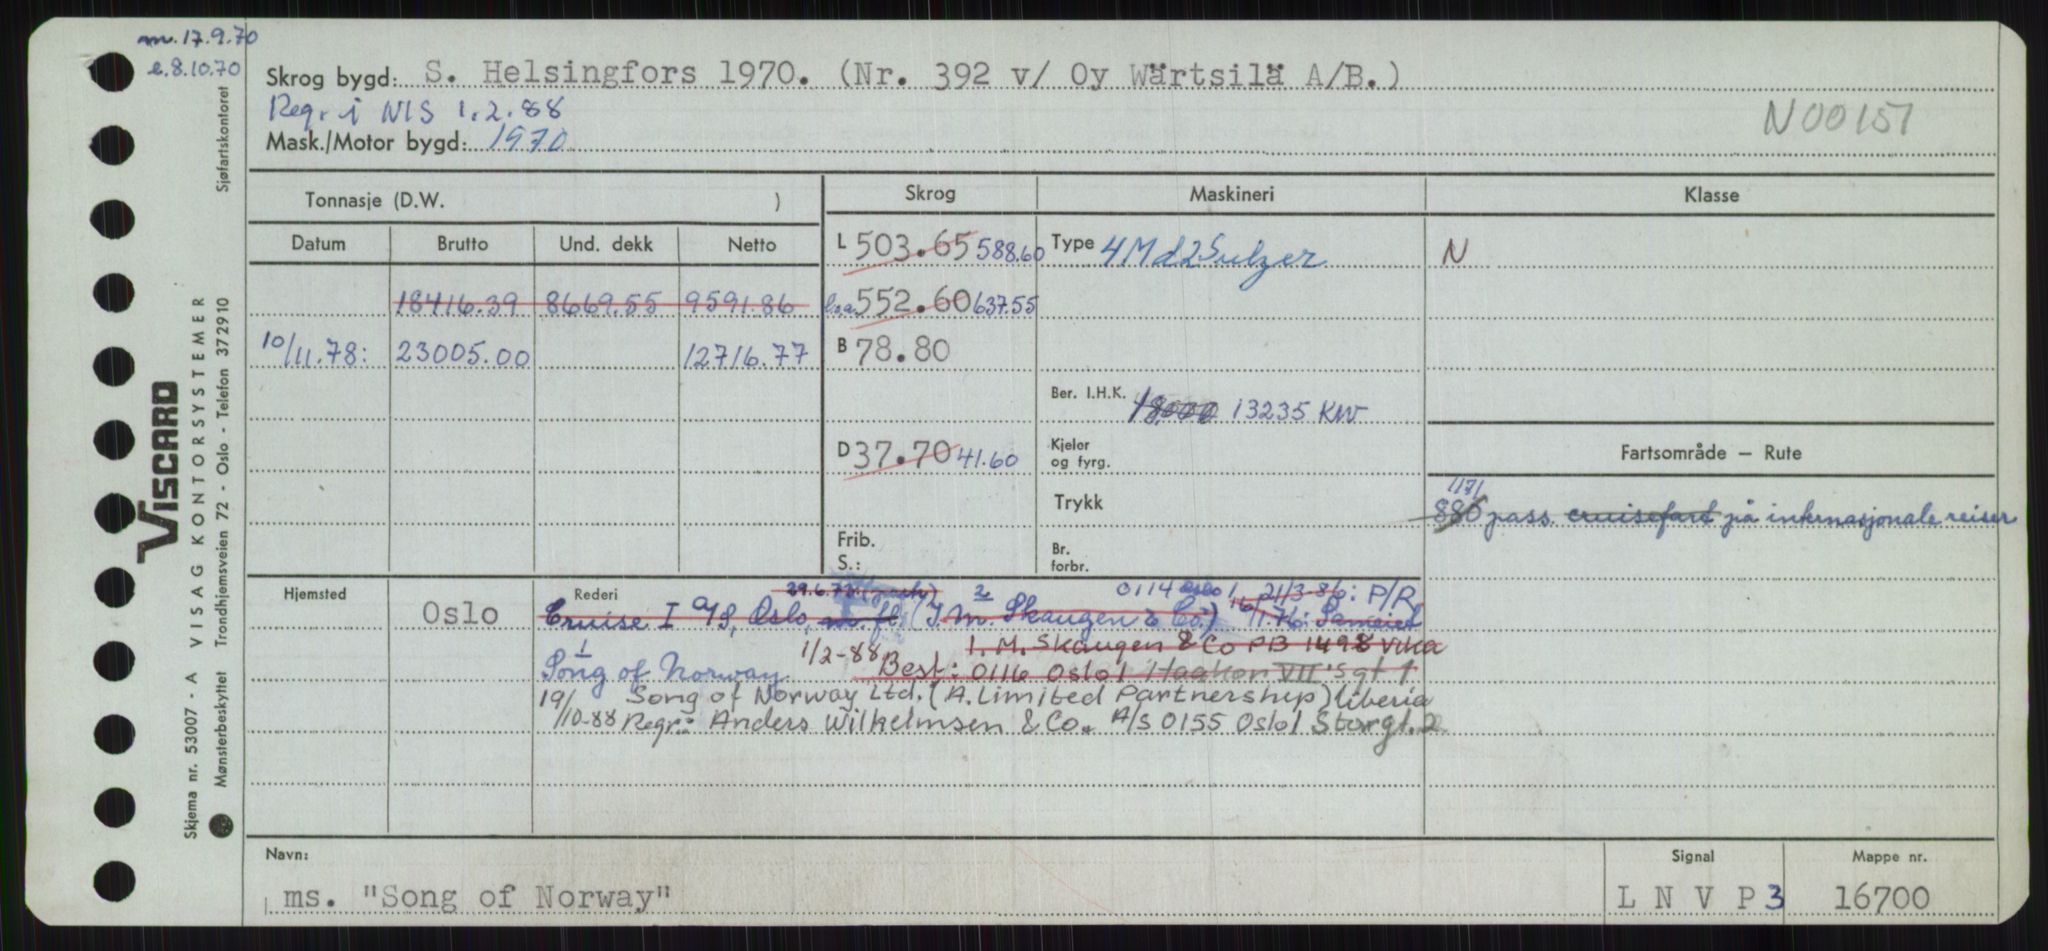 m. 17.9.70
e. 8.10.70
Skrog bygd: S. Helsingfors 1970. (Nr. 392 v/ Oy Wärtsilä A/B.)
Regr. i NIS 1.2.88
N00151
Mask./Motor bygd: 1970
Tonnasje (D.W. )
Skrog
Maskineri
Klasse
Datum Brutto Und. dekk Netto
L 503.65 588.60
Type 4 M d 2 Sulzer
N
18416.39 8669.55 9591.86
l.o.a. 552.60 637.55
10/11.78: 23005.00 12716.77
B 78.80
Ber. I.H.K. 18000 13235 KW
D 37.70 41.60
Kjeler
og fyrg.
Fartsområde – Rute
Trykk
1171
880 pass. cruisefart på internasjonale reiser
Frib.
S.:
Br.
forbr.
Hjemsted
Oslo
Rederi
0114 Oslo 1, 21/3-86: P/R
Cruise I A/S, Oslo, m. fl. (I. M. Skaugen & Co.) 16/11.76: Sameiet
I. M. Skaugen & Co PB 1498 Vika
Song of Norway 1/2-88 Best: 0116 Oslo 1 Haakon VII's gt 1
19/10-88 Song of Norway Ltd. (A. Limited Partnership) Liberia
Regr.: Anders Wilhelmsen & Co. A/S 0155 Oslo 1 Storgt. 2
Navn:
ms. "Song of Norway"
Signal
L N V P 3
Mappe nr.
16700
VISCARD
A VISAG KONTORSYSTEMER
Sjøfartskontoret
Skjema nr. 53007 - A
Mønsterbeskyttet Trondhjemsveien 72 - Oslo - Telefon 372910